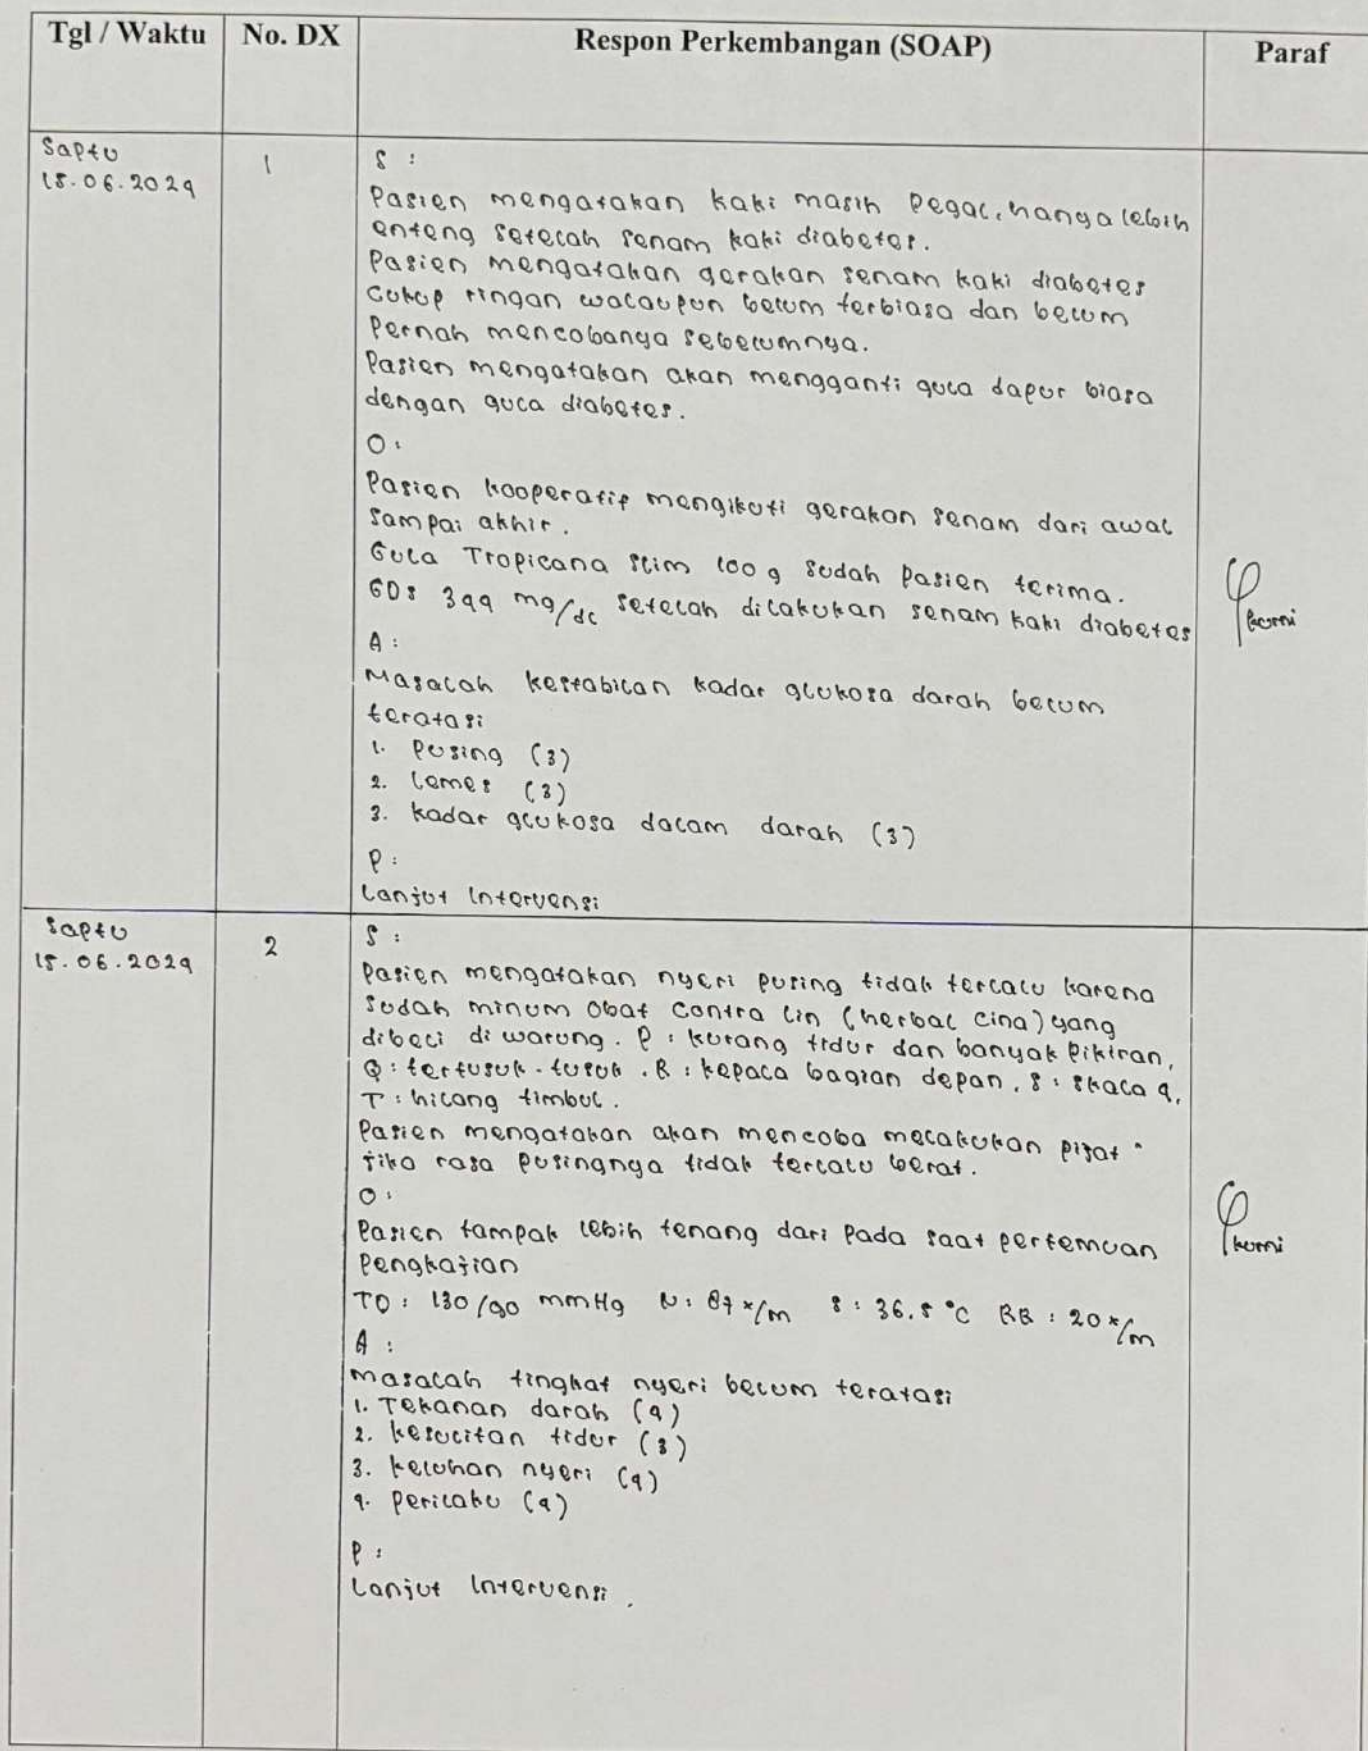 Tgl / Waktu No. DX Respon Perkembangan (SOAP) Paraf
Saptu
15.06.2024
1
S :
Pasien mengatakan kaki masih pegal, hanya lebih
enteng setelah senam kaki diabetes.
Pasien mengatakan gerakan senam kaki diabetes
cukup ringan walaupun belum terbiasa dan belum
Pernah mencobanya sebelumnya.
Pasien mengatakan akan mengganti gula dapur biasa
dengan gula diabetes.
O :
Pasien kooperatif mengikuti gerakan senam dari awal
sampai akhir.
Gula Tropicana slim 100 g sudah Pasien terima.
GDS 344 mg/dl setelah dilakukan senam kaki diabetes
A :
Masalah kestabilan kadar glukosa darah belum
teratasi
1. Pusing (3)
2. Lemes (3)
3. Kadar glukosa dalam darah (3)
P :
Lanjut Intervensi
Kurni
Saptu
15.06.2024
2
S :
Pasien mengatakan nyeri pusing tidak terlalu karena
sudah minum obat Contra lin (herbal cina) yang
dibeli di warung. P : kurang tidur dan banyak pikiran,
Q : tertusuk-tusuk. R : kepala bagian depan. S : skala 4,
T : hilang timbul.
Pasien mengatakan akan mencoba melakukan pijat"
jika rasa pusingnya tidak terlalu berat.
O :
Pasien tampak lebih tenang dari pada saat pertemuan
Pengkajian
TD : 130/90 mmHg N : 87 x/m S : 36.5 °C RR : 20 x/m
A :
Masalah tingkat nyeri belum teratasi
1. Tekanan darah (4)
2. kesulitan tidur (3)
3. keluhan nyeri (4)
4. Perilaku (4)
P :
Lanjut Intervensi.
Kurni